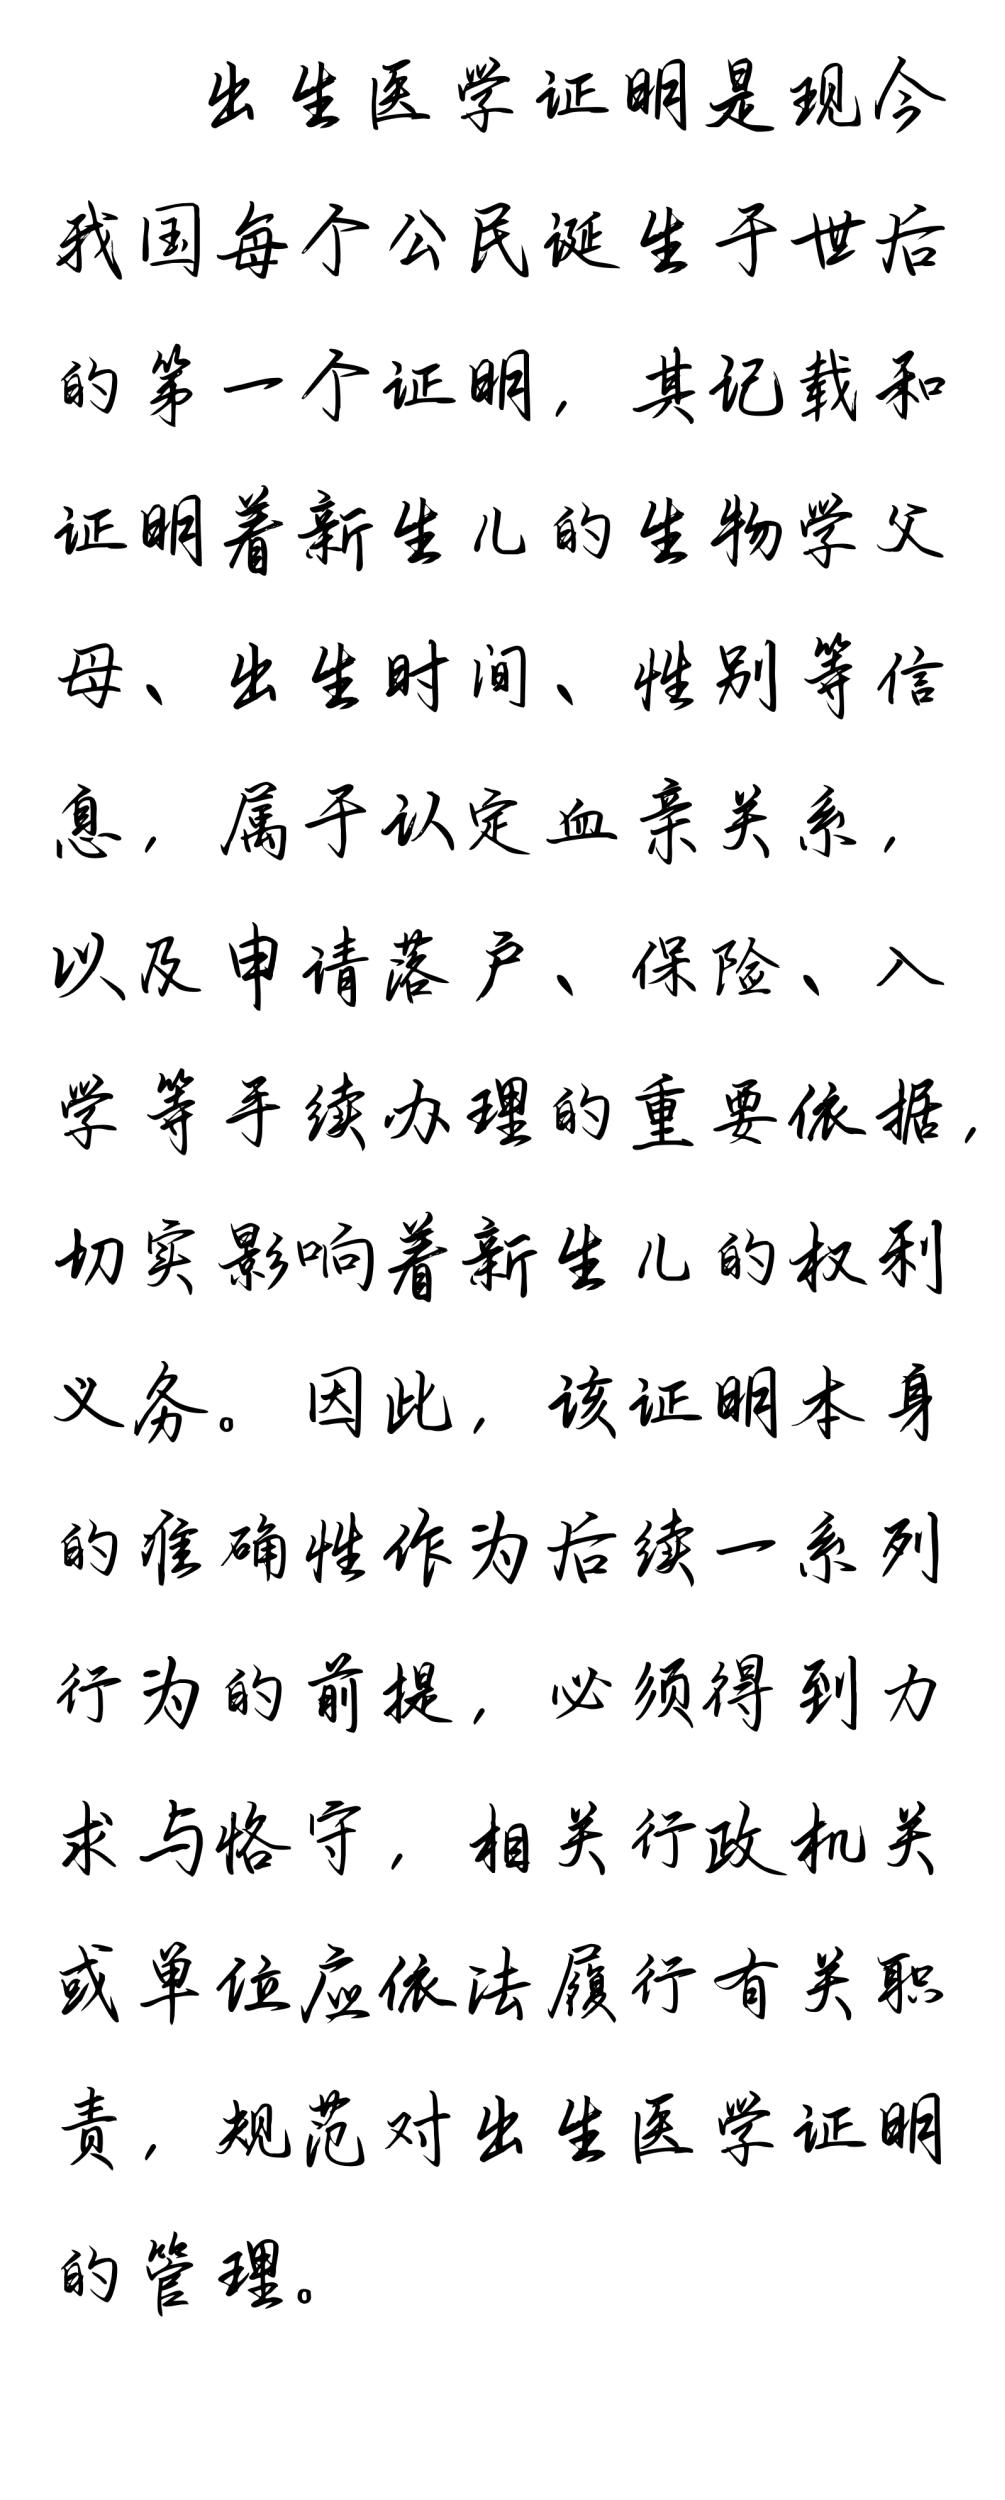 出生医学证明是现今
我国每个人成活于世后
的第一个证明，其记载和
证明着新生儿的生物学父
母、出生时间、性别等信
息，是后续公安亲关系，
以及申请落户、入院、入
学等非公权理的重要凭据，
切实影响着新生儿的权利
义务。因此，该证明本身
的确准给付后续一系列
行动的前提，必须得到力
求卓越实，确关行政机关
或单位应依法履行自其职
责，规范对出生医学证明
的管理。